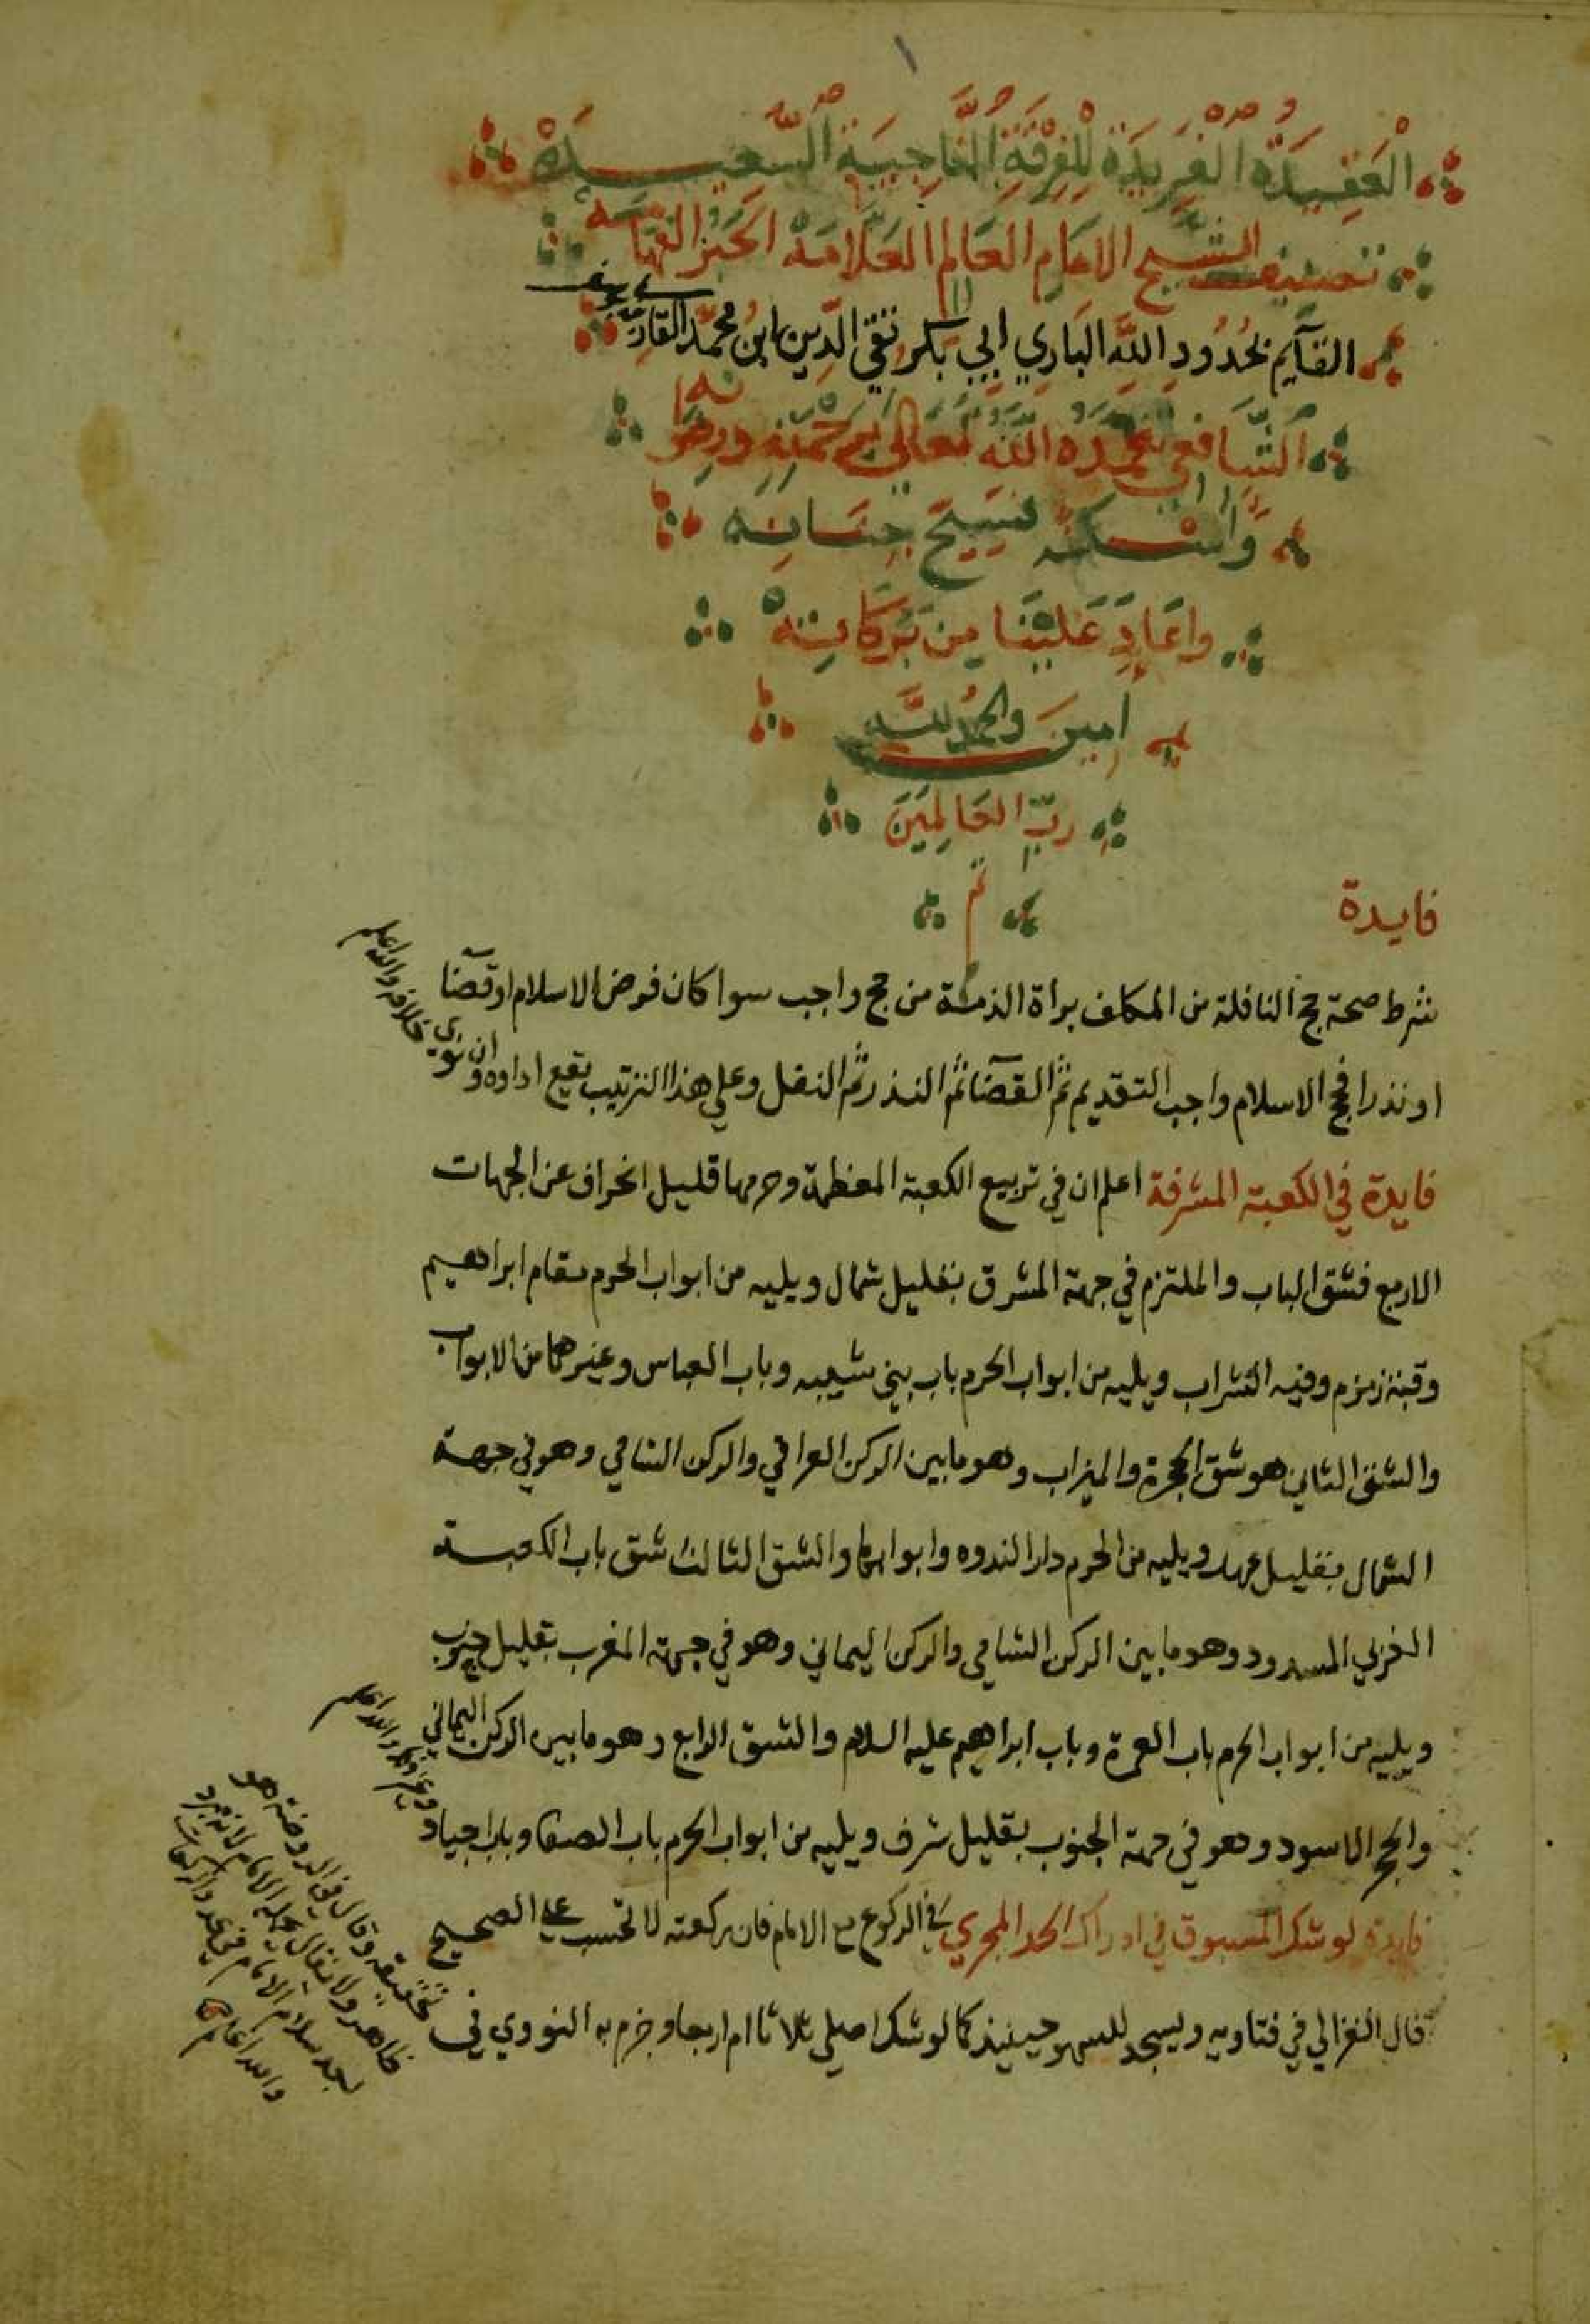 ١
الْعَقِيدَةُ الْفَرِيدَةُ لِلْفِرْقَةِ النَّاجِيَةِ السَّعِيدَةْ
تصنيف الشيخ الامام العالم العلامة الحبر الفهامه
القآيم بحُدُودِ اللّه البَارِي ابي بكر تقي الدّين ابن محمّد القارّي
الشَّافعي تغمّده اللّه تعالى برحمته ورضوانه
وَاسْكنه فسيح جنانه
واعَادَ عَلَيْنَا من بَرَكاتِهْ
امِينَ والحمْدُ للّه
ربّ العَالمِينَ
تم
فايدة
شرط صحة حج النافلة من المكلف براة الذمة من حج واجب سوا كان فرض الاسلام او قضآ
او نذرا فحج الاسلام واجب التقديم ثم القضآ ثم النذر ثم النفل وعلي هذا الترتيب يقع اداوه وان نوي خلافه والله اعلم
فايدة في الكعبة المشرفة اعلم ان في تربيع الكعبة المعظمة وحرمها قليل انحراف عن الجهات
الاربع فشق الباب والملتزم في جهة المشرق بقليل شمال ويليه من ابواب الحرم مقام ابراهيم
وقبة زمزم وقبة الشراب ويليه من ابواب الحرم باب بني شيبه وباب العباس وغيرهما من الابواب
والشق الثاني هو شق الحجرة والميزاب وهو مابين الركن العراقي والركن الشامي وهو في جهة
الشمال بقليل ويليه من الحرم دار الندوه وابوابها والشق الثالث شق باب الكعبة
الغربي المسدود وهو مابين الركن الشامي والركن اليماني وهو في جهة المغرب بقليل جنوب
ويليه من ابواب الحرم باب العمرة وباب ابراهيم عليه السلام والشق الرابع وهو مابين الركن اليماني
والحجر الاسود وهو في جهة الجنوب بقليل شرف ويليه من ابواب الحرم باب الصفا وباب اجياد وغيرهما والله اعلم
فايدة لو شك المسبوق في ادراك الحد المجزي في الركوع مع الامام فان ركعته لا تحسب علي الصحيح
قال الغزالي في فتاويه ويسجد للسهو حينيذ كما لو شك اصلي ثلاثا ام اربعا وجزم به النووي في
تحقيقه وقال في الروضة هو
ظاهر ولا يقال يحمله الامام لانه
بعد سلام الامام في عدد الركعات
والله اعلم